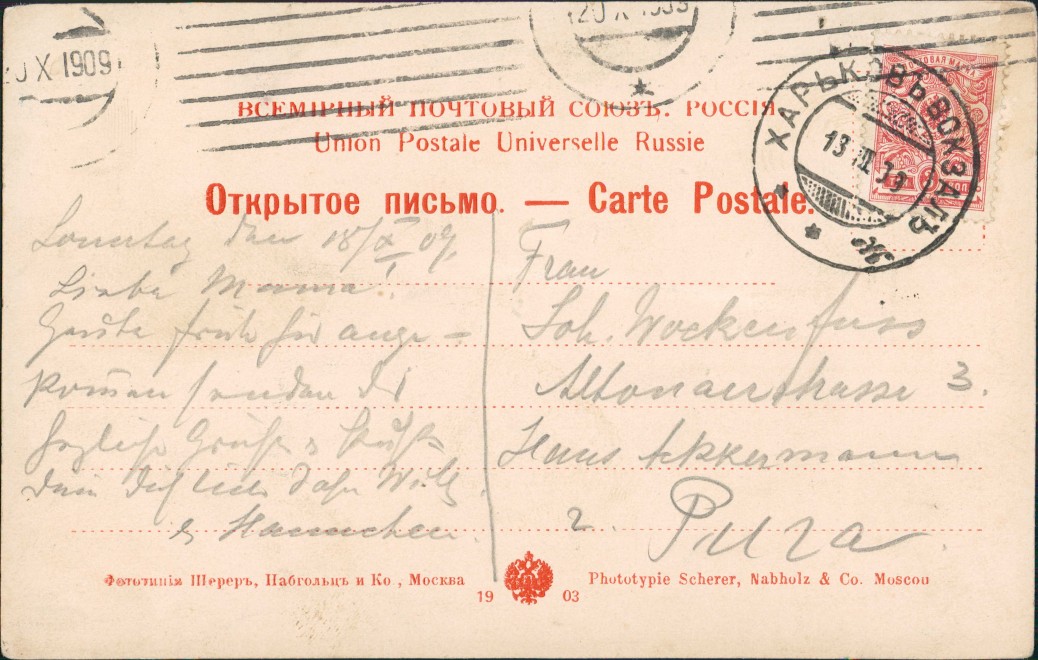 20 X 1909
20 X 1909
ХАРЬКОВЪ ВОКЗАЛЪ
13
ВСЕМІРНЫЙ ПОЧТОВЫЙ СОЮЗЪ. РОССІЯ
Union Postale Universelle Russie
Открытое письмо. — Carte Postale.
Sonntag den 18/X 09.
Liebe Mama.
Heute früh hir ange=
kommen senden dir
herzliche Grüße & Küsse
Dein dich lieb. Sohn Willy.
& Hannchen.
Frau
Joh. Wockenfuss
Altonaerstrasse 3.
Haus Akkermann
г. Рига
Фототипія Шереръ, Набгольцъ и Ко, Москва
19 03
Phototypie Scherer, Nabholz & Co. Moscou